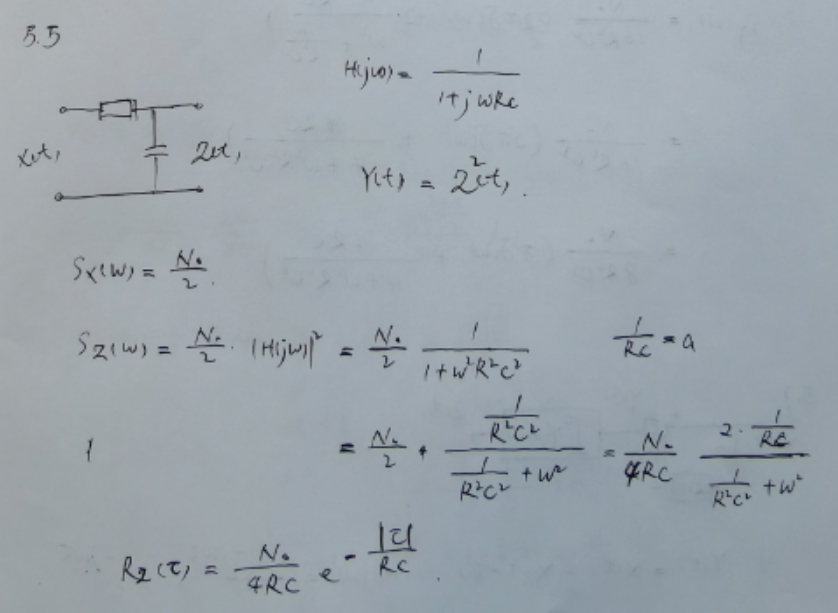 5.5
H(jω) = 1/(1+jωRC)
X(t) Z(t)
Y(t) = Z²(t).
S_X(ω) = N₀/2.
S_Z(ω) = N₀/2 · |H(jω)|² = N₀/2 1/(1+ω²R²C²) 1/RC = a
= N₀/2 · (1/R²C²)/(1/R²C² + ω²) = N₀/4RC (2·1/RC)/(1/R²C² + ω²)
∴ R_Z(τ) = N₀/4RC e^(-|τ|/RC).